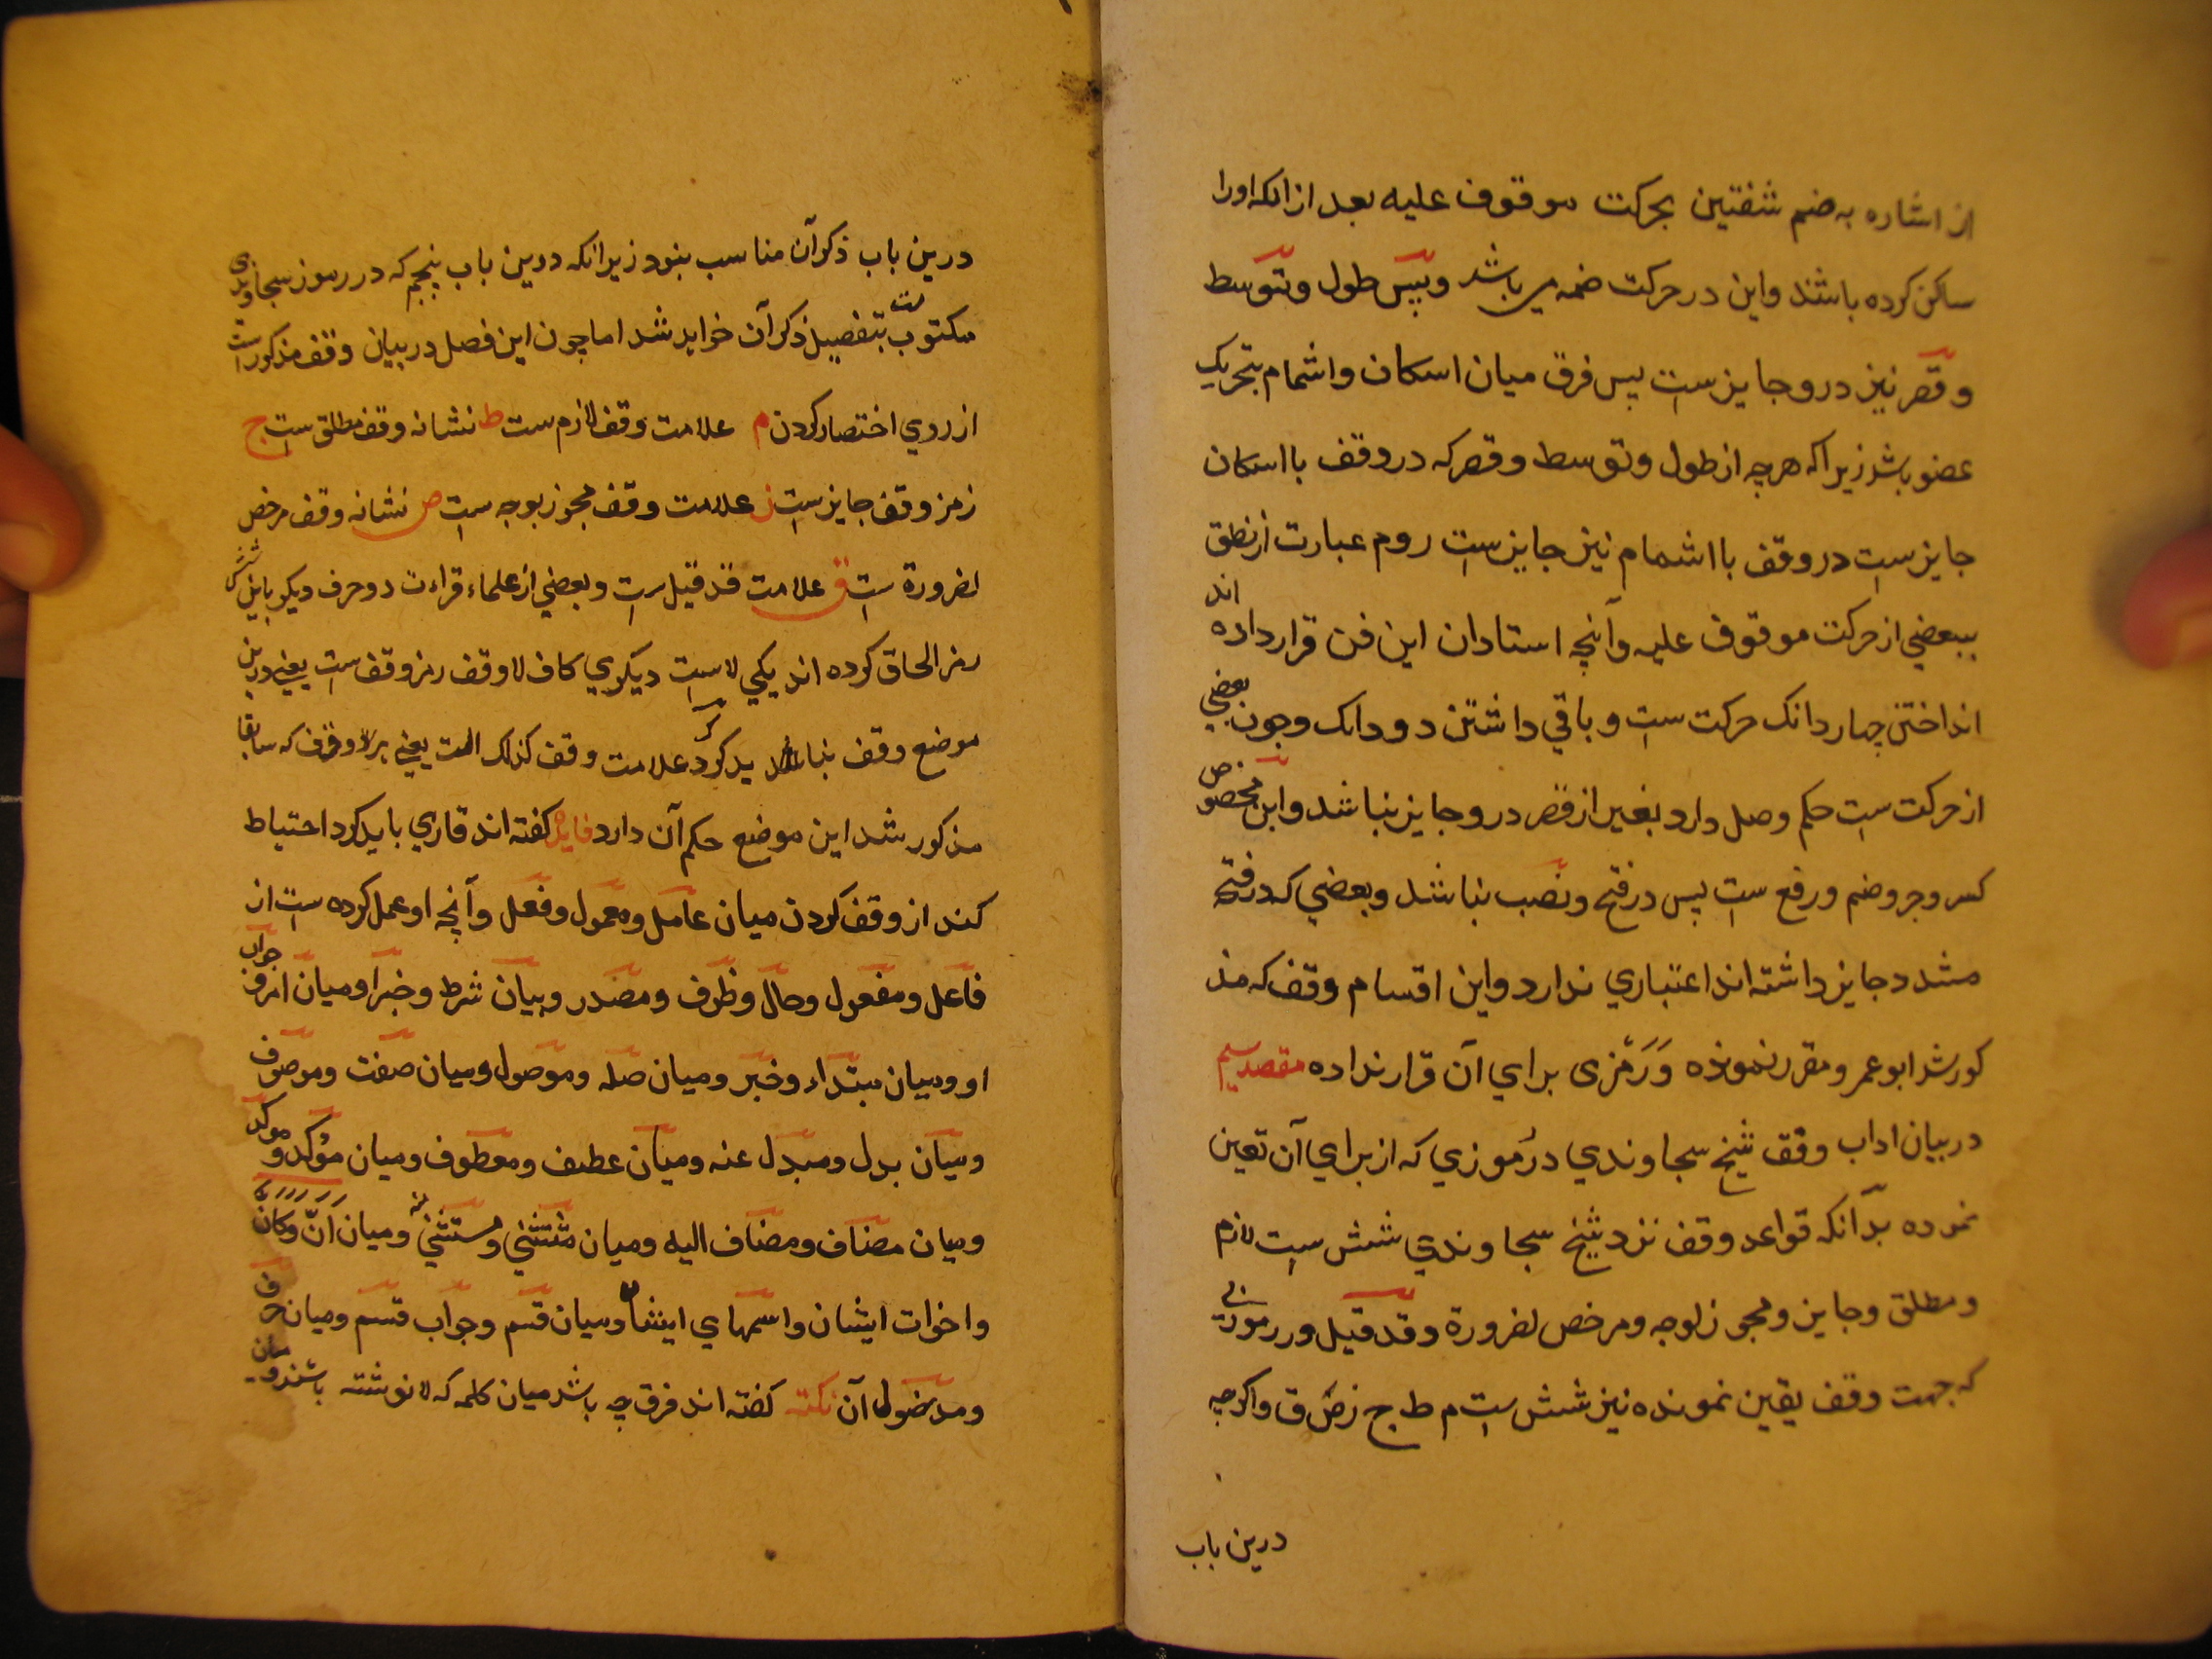 از اشاره به ضم شفتین بحرکت موقوف علیه بعد از انکه اورا
ساکن کرده باشند واین در حرکت ضمه می باشد وپس طول وتوسط
وقصر نیز درو جایزست پس فرق میان اسکان واشمام بتحریک
عضو باشد زیراکه هرچه از طول وتوسط وقصر که در وقف با اسکان
جایزست در وقف با اشمام نیز جایزست روم عبارت از نطق
ببعضي از حرکت موقوف علیه وآنچه استادان این فن قرار داده اند
انداختن چهار دانک حرکت ست وباقي داشتن دو دانک وچون بعضي
از حرکت ست حکم وصل دارد بغیر از قصر درو جایز نباشد واین مخصوص
کسر وجر وضم ورفع ست پس در فتح ونصب نباشد وبعضي که در فتحه
مشدد جایز داشته اند اعتباري ندارد واین اقسام وقف که مذ
کور شد ابو عمر ومقرر نموده وَرَمْزی براي آن قرار نداده مقصد سیم
در بیان اداب وقف شیخ سجاوندي در رموزي که از براي آن تعین
نموده بدآنکه قواعد وقف نزد شیخ سجاوندي شش ست لازم
ومطلق وجایز ومجوز لوجه ومرخص لضرورة وقد قیل ورموزي
که جهت وقف یقین نموده نیز شش ست م ط ج ز ص ق واکرچه
درین باب
درین باب ذکر آن مناسب نبود زیرانکه درین باب پنجم که در رموز سجاوندي
مکتوبست بتفصیل ذکر آن خواهد شد اما چون این فصل در بیان وقف مذکور است
از روي اختصار کردن م علامت وقف لازم ست ط نشانه وقف مطلق ست ج
رمز وقف جایزست ز علامت وقف مجوز بوجه ست ص نشانه وقف مرخص
لضرورة ست ق علامت قد قیل ست وبعضي از علماء قراءت دو حرف دیکر باین شش
رمز الحاق کرده اند یکي لا ست دیکري کاف لا وقف رمز وقف ست یعني درین
موضع وقف نباید کرد ک علامت وقف کذلک است یعني هر وقف که سابقا
مذکور شد این موضع حکم آن دارد فایده کفته اند قاري باید کرد احتیاط
کند از وقف کردن میان عامل ومعمول وفعل وآنچه او عمل کرده ست از
فاعل ومفعول وحال وظرف ومصدر وبیان شرط وخبرا ومیان امر وجواب
او ومیان مبتداء وخبر ومیان صله وموصول ومیان صفت وموصوف
ومیان بدل ومبدل عنه ومیان عطف ومعطوف ومیان مؤکد وموکد
ومیان مضاف ومضاف الیه ومیان مثتثني ومستثني منه ومیان اَنّ وکان
واخوات ایشان واسمهاي ایشان ومیان قسم وجواب قسم ومیان حرف
ومدخول آن نکته کفته اند فرق چه باشد میان کلمه که لا نوشته باشند ومیان